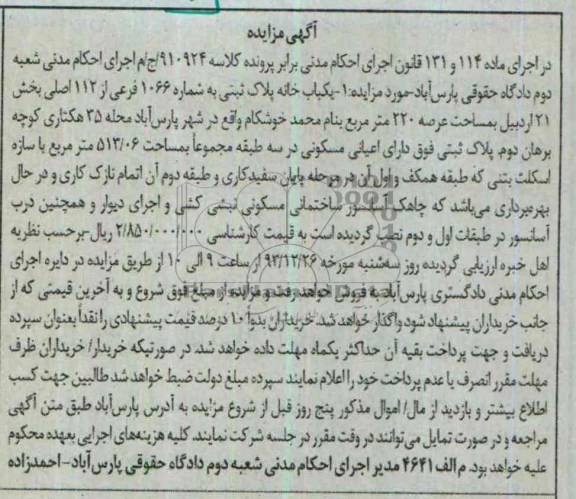 آگهی مزایده
در اجرای ماده ۱۱۴ و ۱۳۱ قانون اجرای احکام مدنی برابر پرونده کلاسه ۹۱۰۹۲۴/ج/م اجرای احکام مدنی شعبه
دوم دادگاه حقوقی پارس‌آباد-مورد مزایده: ۱-یکباب خانه پلاک ثبتی به شماره ۱۰۶۶ فرعی از ۱۱۲ اصلی بخش
۲۱ اردبیل بمساحت عرصه ۲۲۰ متر مربع بنام محمد خوشکام واقع در شهر پارس‌آباد محله ۳۵ هکتاری کوچه
برهان دوم. پلاک ثبتی فوق دارای اعیانی مسکونی در سه طبقه مجموعاً بمساحت ۵۱۳/۰۶ متر مربع با سازه
اسکلت بتنی که طبقه همکف و اول آن در مرحله پایان سفیدکاری و طبقه دوم آن اتمام نازک کاری و در حال
بهره‌برداری می‌باشد که چاهک آسانسور ساختمانی مسکونی نبشی کشی و اجرای دیوار و همچنین درب
آسانسور در طبقات اول و دوم نصب گردیده است به قیمت کارشناسی ۲/۸۵۰/۰۰۰/۰۰۰ ریال-برحسب نظریه
اهل خبره ارزیابی گردیده روز سه‌شنبه مورخه ۹۳/۱۲/۲۶ از ساعت ۹ الی ۱۰ از طریق مزایده در دایره اجرای
احکام مدنی دادگستری پارس‌آباد به فروش خواهد رفت مزایده از مبلغ فوق شروع و به آخرین قیمتی که از
جانب خریداران پیشنهاد شود واگذار خواهد شد. خریداران بدواً ۱۰ درصد قیمت پیشنهادی را نقداً بعنوان سپرده
دریافت و جهت پرداخت بقیه آن حداکثر یکماه مهلت داده خواهد شد. در صورتیکه خریدار/ خریداران ظرف
مهلت مقرر انصرف یا عدم پرداخت خود را اعلام نمایند سپرده مبلغ دولت ضبط خواهد شد طالبین جهت کسب
اطلاع بیشتر و بازدید از مال/ اموال مذکور پنج روز قبل از شروع مزایده به آدرس پارس‌آباد طبق متن آگهی
مراجعه و در صورت تمایل می‌توانند در وقت مقرر در جلسه شرکت نمایند. کلیه هزینه‌های اجرایی بعهده محکوم
علیه خواهد بود. م الف ۴۶۴۱ مدیر اجرای احکام مدنی شعبه دوم دادگاه حقوقی پارس‌آباد-احمدزاده